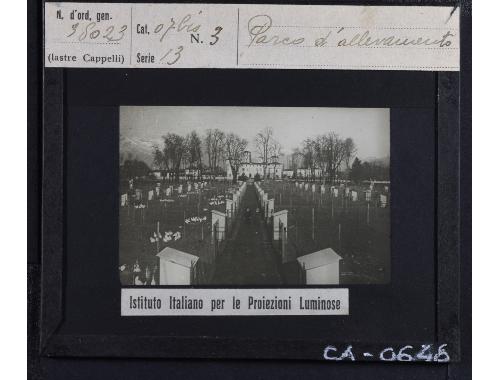 N. d'ord. gen.
38023
(lastre Cappelli)
Cat. 07bis
N. 3
Serie 13
Parco d'allevamento
Istituto Italiano per le Proiezioni Luminose
CA-0646